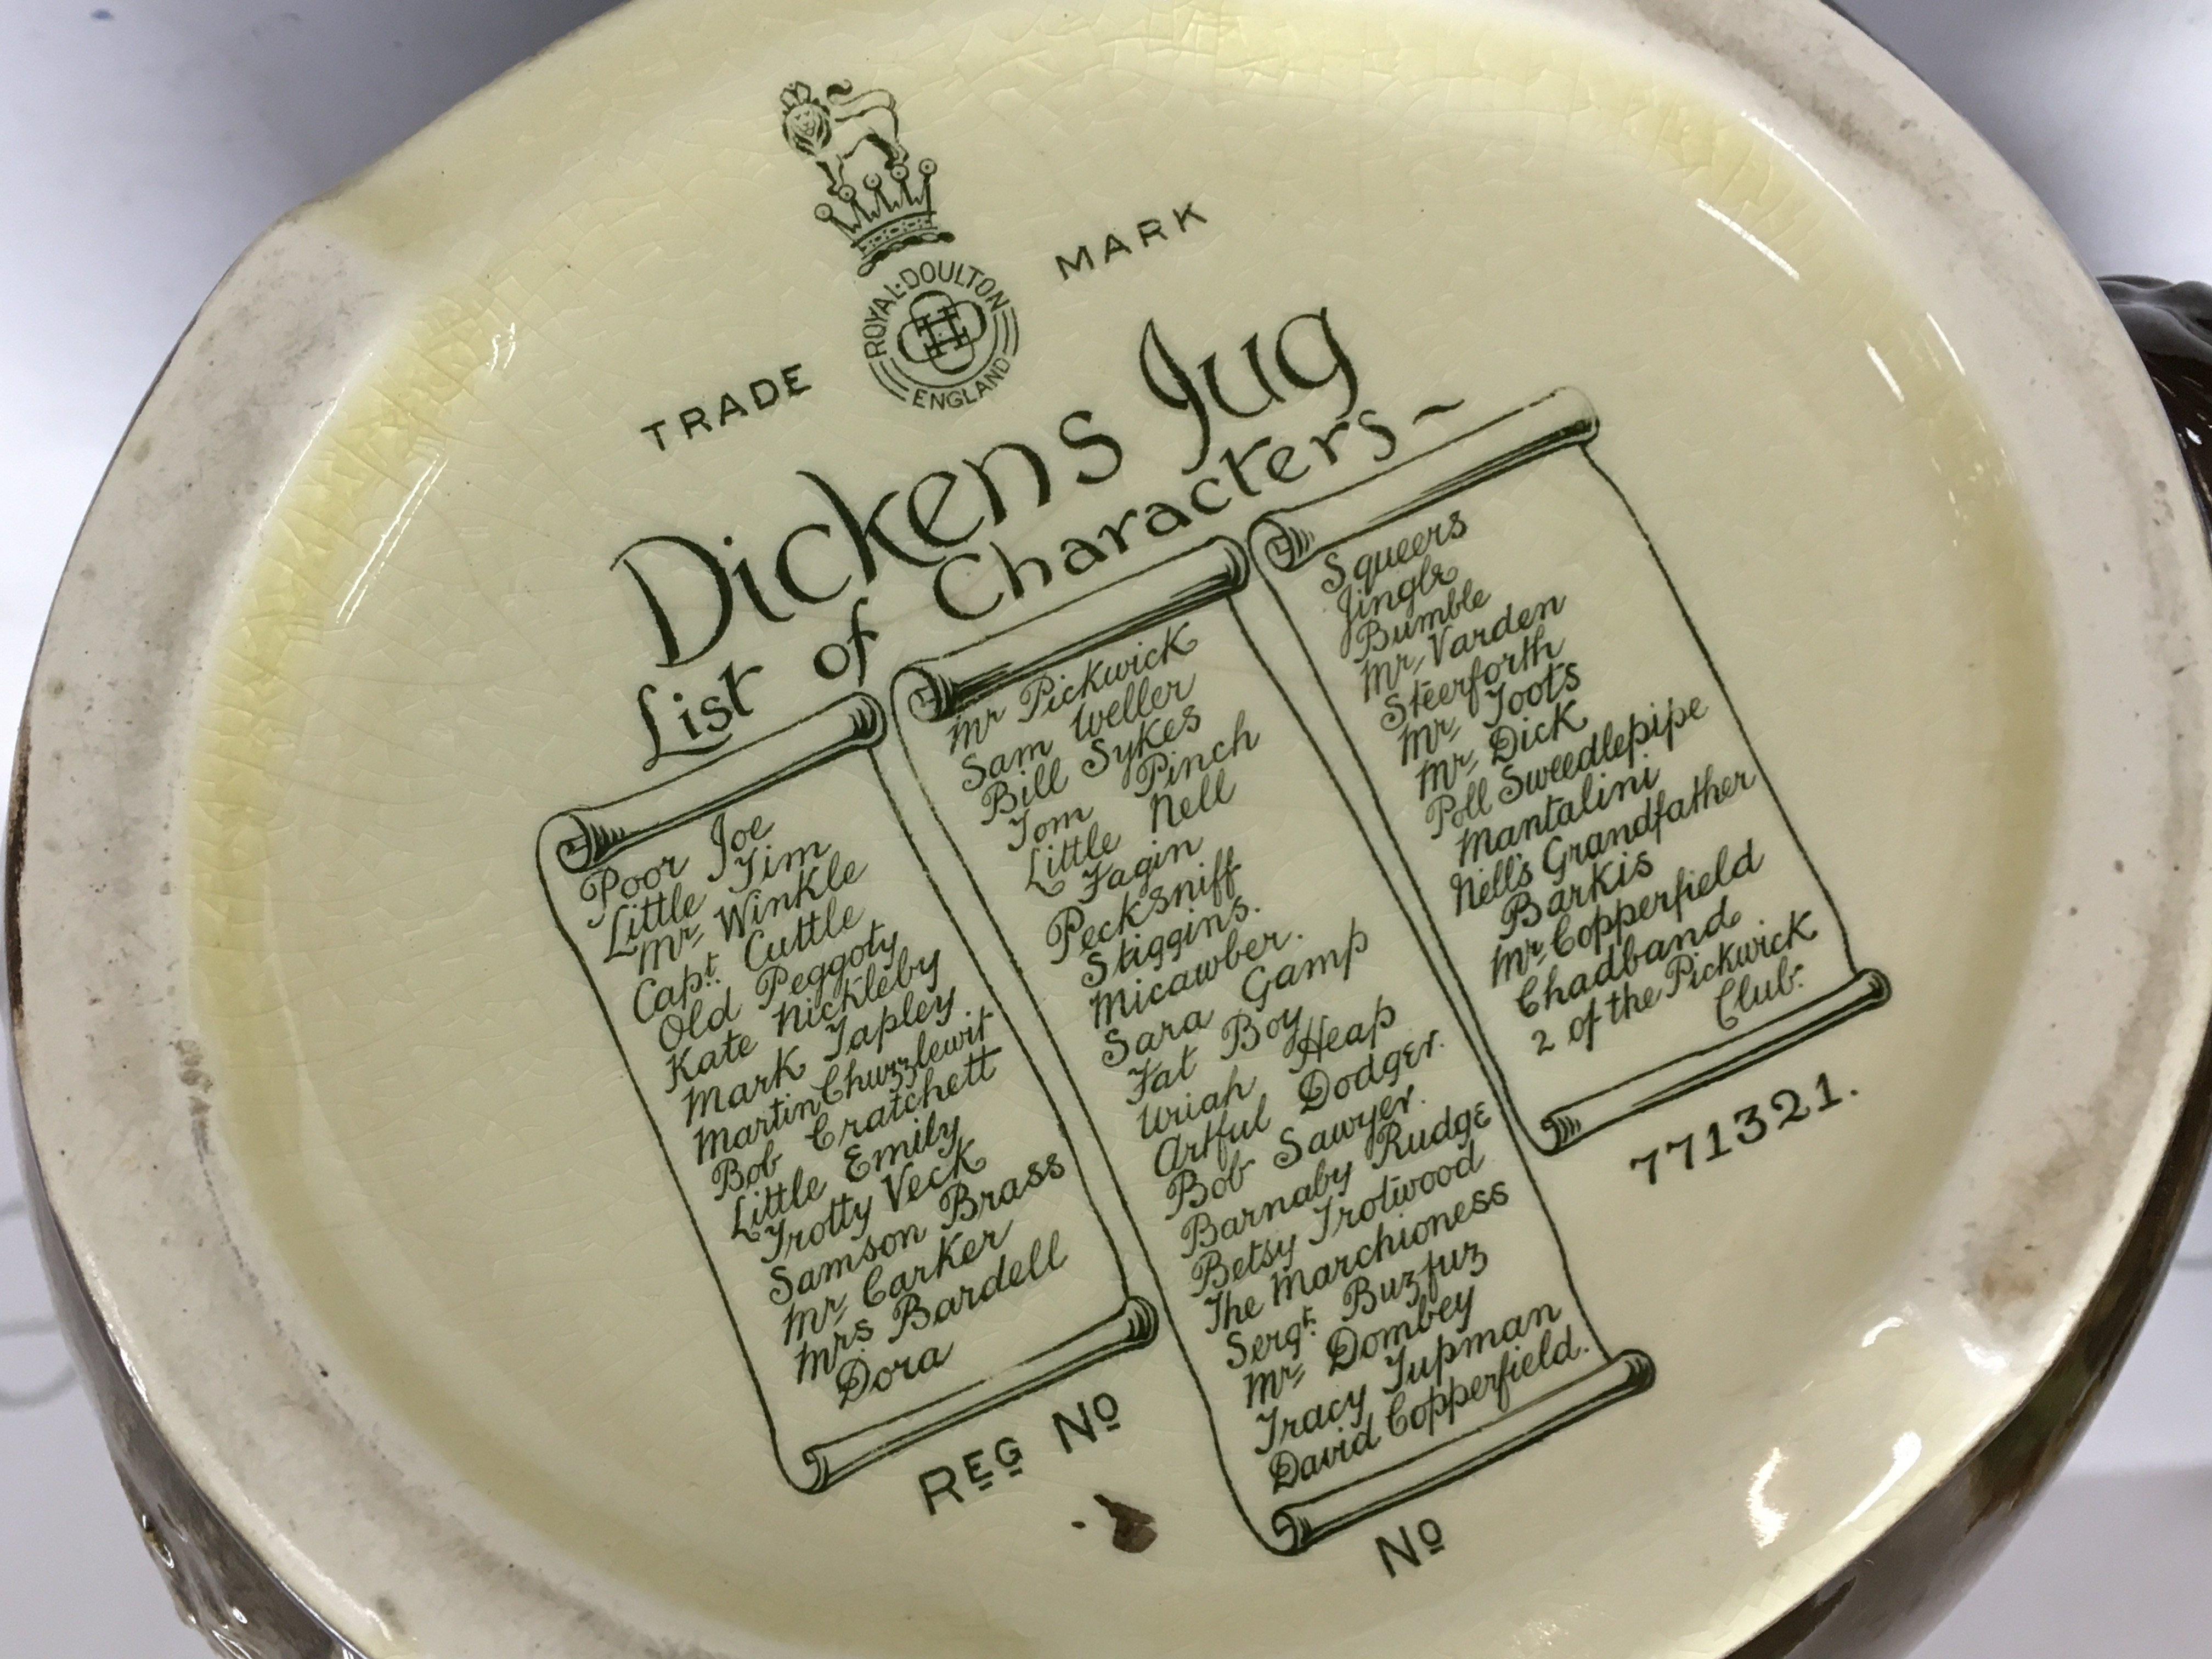 TRADE MARK
ROYAL·DOULTON
ENGLAND
Dickens Jug
List of Characters~
Poor Joe
Little Tim
Mr. Winkle
Capt. Cuttle
Old Peggoty
Kate Nickleby
Mark Tapley
Martin Chuzzlewit
Bob Cratchett
Little Emily
Trotty Veck
Samson Brass
Mr. Carker
Mrs Bardell
Dora
Mr Pickwick
Sam Weller
Bill Sykes
Tom Pinch
Little Nell
Fagin
Pecksniff
Stiggins.
Micawber.
Sara Gamp
Fat Boy
Uriah Heap
Artful Dodger.
Bob Sawyer.
Barnaby Rudge
Betsy Trotwood
The Marchioness
Sergt. Buzfuz
Mr. Dombey
Tracy Tupman
David Copperfield.
Squeers
Jingle
Bumble
Mr. Varden
Steerforth
Mr. Toots
Mr. Dick
Poll Sweedlepipe
Mantalini
Nell's Grandfather
Barkis
Mr. Copperfield
Chadband.
2 of the Pickwick
Club.
REG No 771321.
No